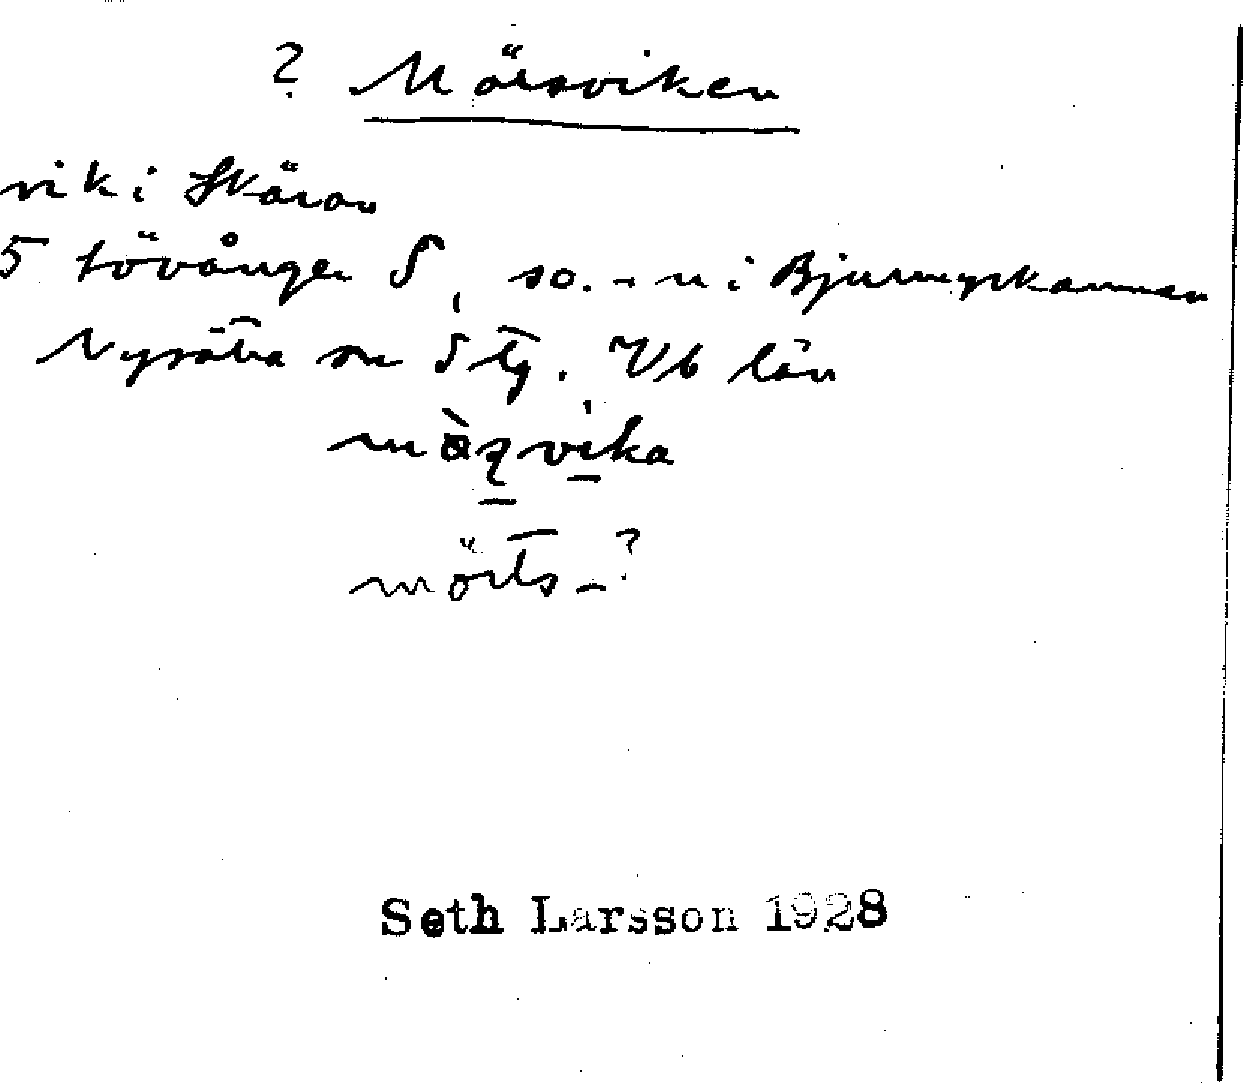 ? Mörsviken
vik i Skäran
5 Lövånger S, so. -n i Bjurmyrkammen
Nysätra sn Stg. Vb län
vika
mörts-?
Seth Larsson 1928